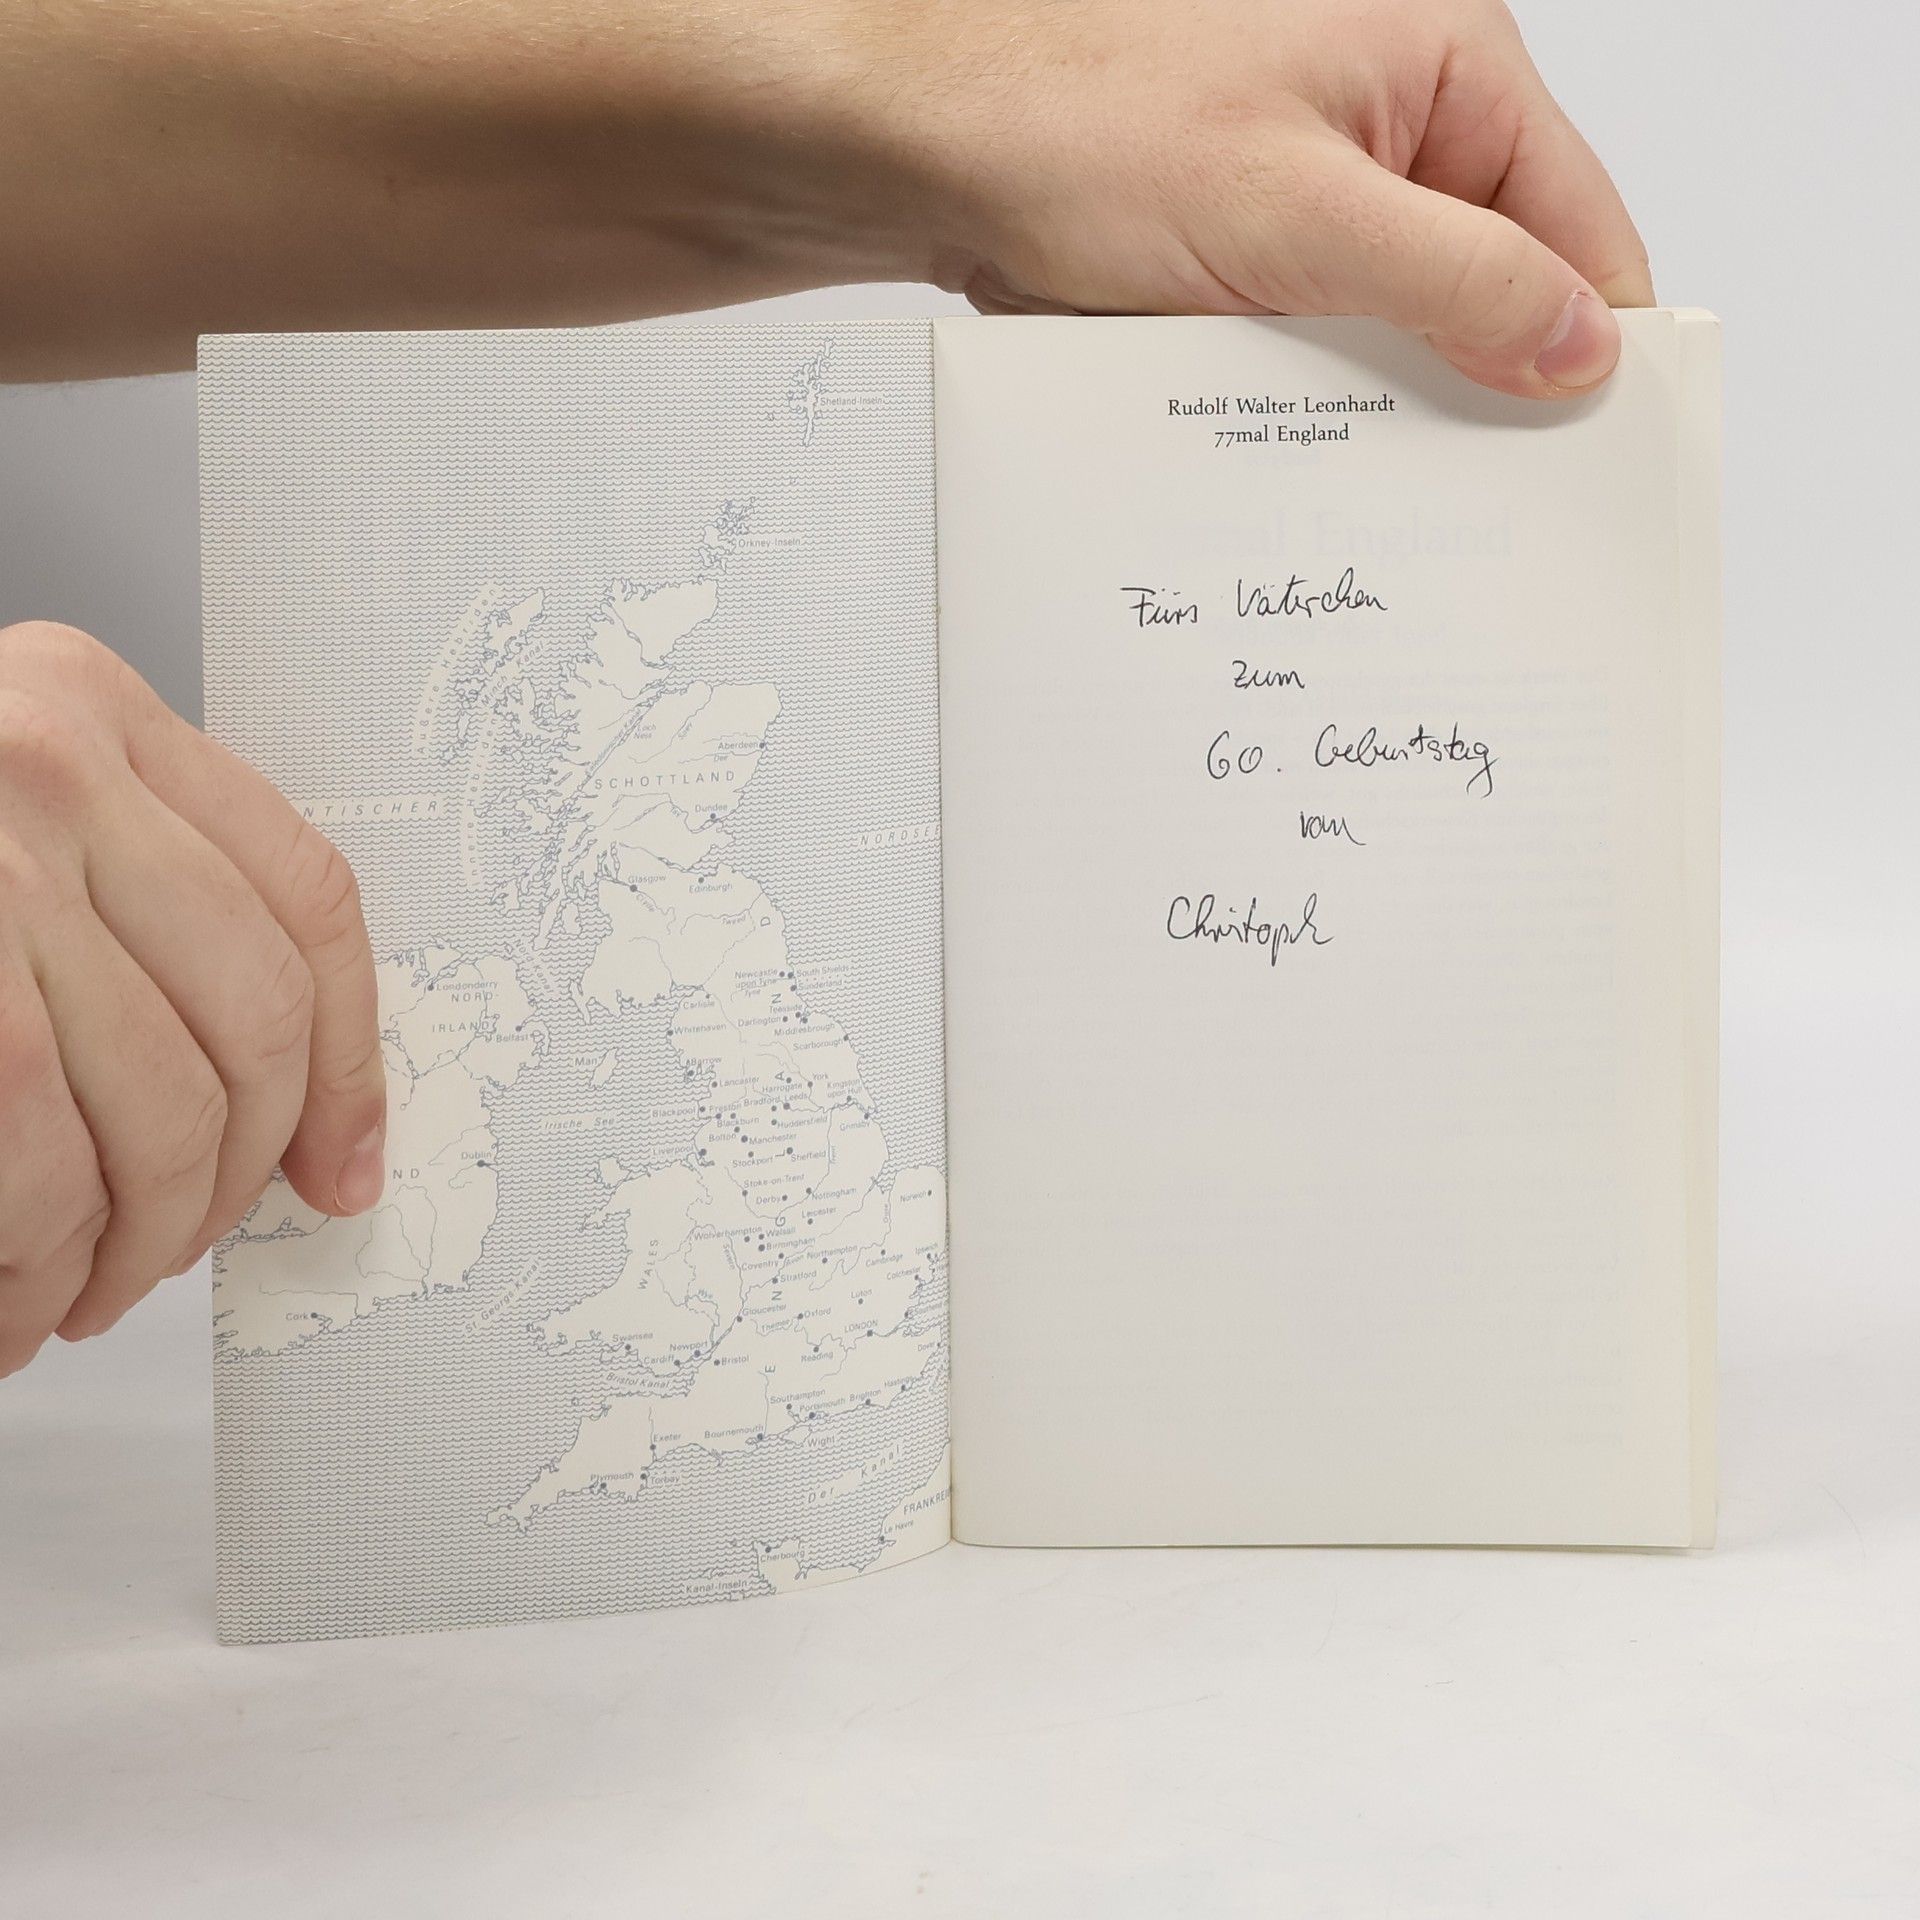 Shetland-Inseln
Orkney-Inseln
Äußere Hebriden
Minch Kanal
Innere Hebriden
Kaledonischer Kanal
Loch
Ness
Spey
Aberdeen
Dee
SCHOTTLAND
NTISCHER
Dundee
Tay
NORDSEE
Glasgow
Edinburgh
Clyde
Tweed
Nord Kanal
Londonderry
NORD-
IRLAND
Belfast
Newcastle
upon Tyne
South Shields
Tyne
Sunderland
Carlisle
Teesside
Darlington
Whitehaven
Middlesbrough
Scarborough
Man
Barrow
Lancaster
York
Harrogate
Kingston
upon Hull
Blackpool
Preston
Bradford
Leeds
Blackburn
Huddersfield
Irische See
Grimsby
Bolton
Manchester
Liverpool
Stockport
Sheffield
Trent
Dublin
ND
Stoke-on-Trent
Derby
Nottingham
Norwich
Leicester
Ouse
Wolverhampton
Walsall
Birmingham
WALES
Severn
Coventry
Avon
Northampton
Cambridge
Ipswich
Stratford
Colchester
Wye
Luton
St. George-Kanal
Gloucester
Oxford
Cork
Themse
LONDON
Southend
Swansea
Newport
Reading
Dover
Cardiff
Bristol
Bristol Kanal
ENGLAND
Hastings
Southampton
Portsmouth
Brighton
Exeter
Bournemouth
Wight
Plymouth
Torbay
Der Kanal
FRANKREI
Le Havre
Cherbourg
Kanal-Inseln
Rudolf Walter Leonhardt
77mal England
Fürs Väterchen
zum
60. Geburtstag
von
Christoph